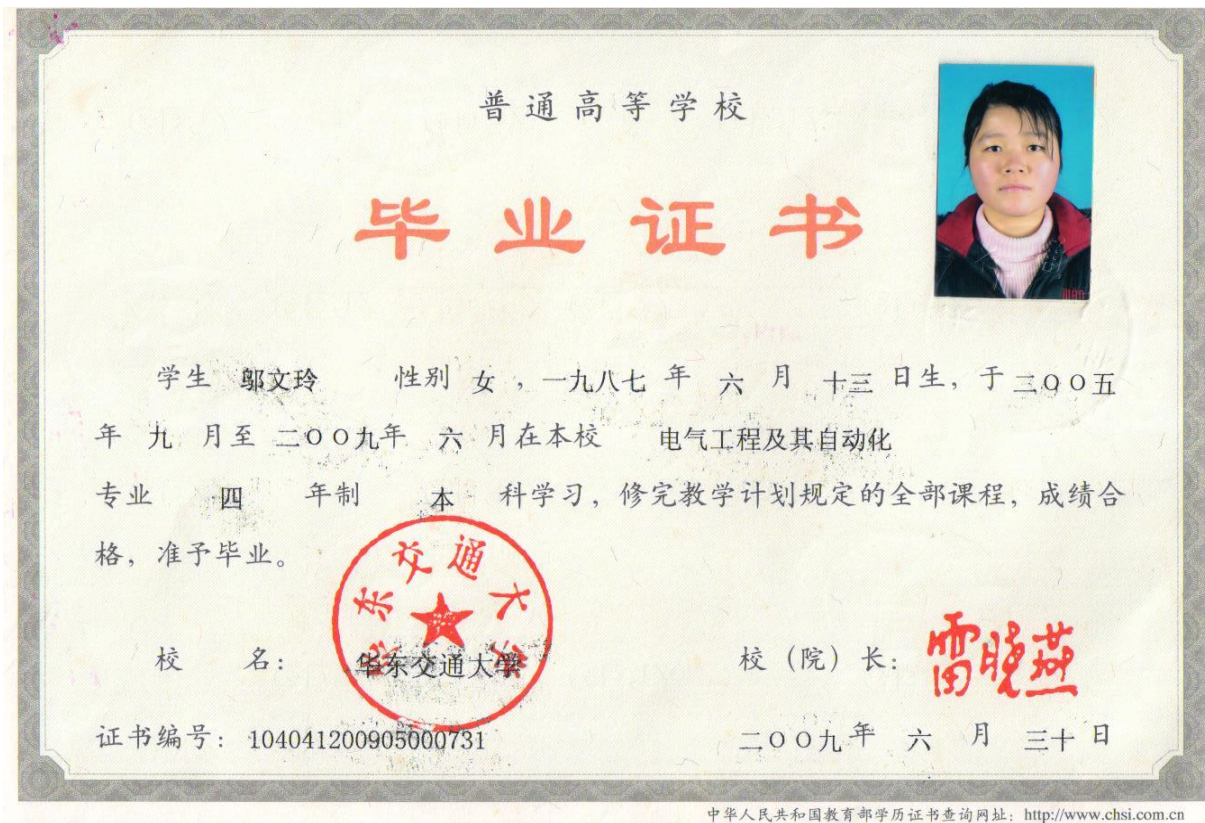 普通高等学校
毕业证书
学生 邬文玲 性别 女 ，一九八七 年 六 月 十三 日生，于 二〇〇五
年 九 月至 二〇〇九年 六 月在本校 电气工程及其自动化
专业 四 年制 本 科学习，修完教学计划规定的全部课程，成绩合
格，准予毕业。
华东交通大学
校 名： 华东交通大学 校（院）长： 雷晓燕
证书编号：104041200905000731 二〇〇九年 六 月 三十 日
中华人民共和国教育部学历证书查询网址：http://www.chsi.com.cn